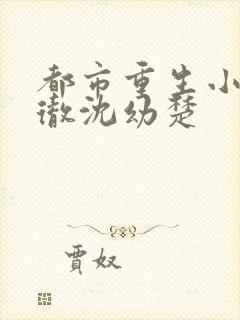 都市重生小
澈沈幼楚
贾奴